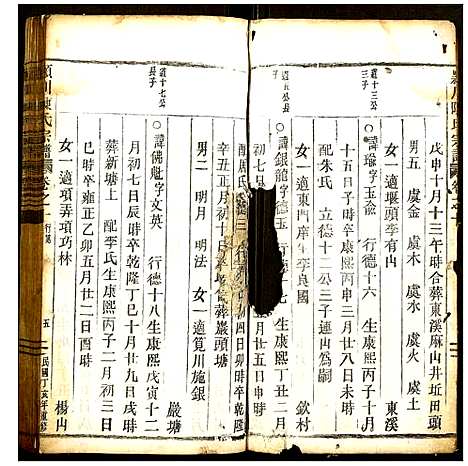 潁川陳氏宗譜
戊申十月十三午時合葬東溪麻山井坵田頭
男五 虞金 虞木 虞水 虞火 虞土
女一適堰頭李有內
東溪
蓮十三公三子
諱瑜字玉 行德十六 生康熙丙子十月
十五日子時卒康熙丙申三月廿八日未時
配朱氏 立德十二公三子連山為嗣
女一適東門內庠生李良國
欽村
諱銀龍字德玉 生康熙丁丑二月
初七
配周氏
四日卯時卒乾隆
辛丑正月初十
葬巖頭塘
男二 明月 明法 女一適筧川施銀
巖塘
蓮十七公長子
諱佛魁字文英 行德十八生康熙戊寅十二
月初七日辰時卒乾隆丁巳十月廿九日戌時
葬新塘上 配李氏生康熙丙子二月初三日
巳時卒雍正乙卯五月廿二日酉時
女一適項弄項巧林
楊山
潁川陳氏宗譜
卷之一
行第
五
民國丁亥年重修